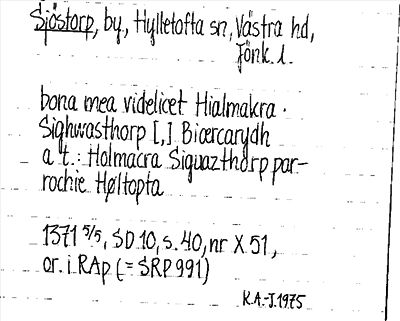 Sjöstorp, by, Hylletofta sn, Västra hd,
Jönk. l.
bona mea videlicet Hialmakra.
Sighwasthorp [,] Biærcarydh
a t.: Holmacra Siguazthorp par-
rochie Høltopta
1371 5/5, SD 10, s. 40, nr X 51,
or. i RAp (= SRP 991)
K.A.-J. 1975